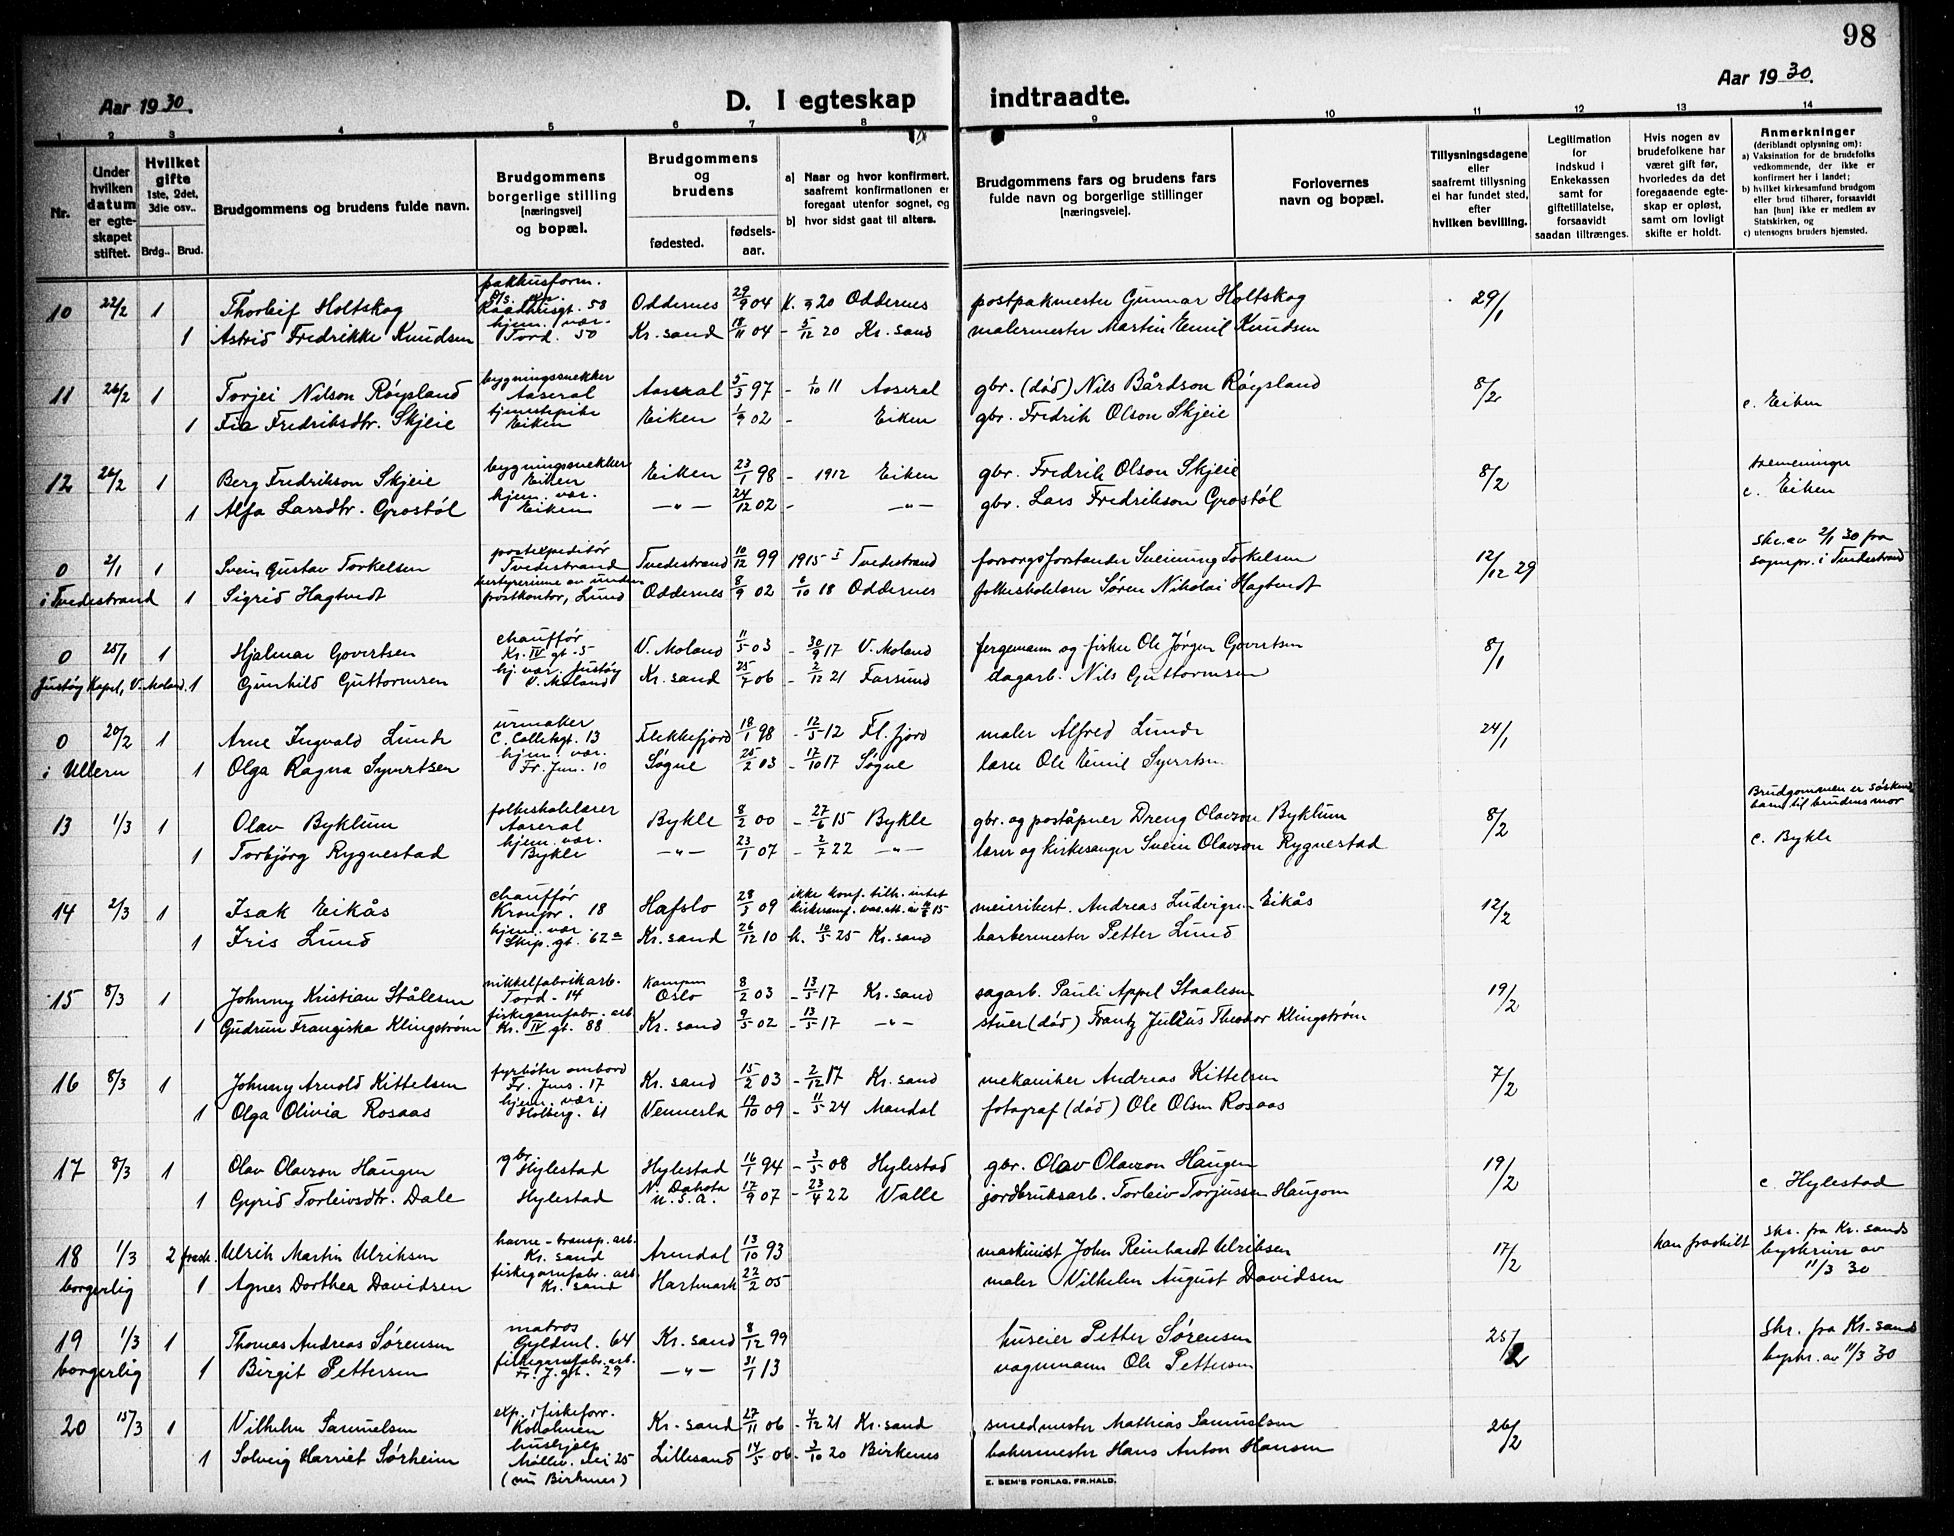 98
Aar 1930. D. I egteskap indtraadte. Aar 1930.
1 2 3 4 5 6 7 8 9 10 11 12 13 14
Nr.
Under hvilken datum er egteskapet stiftet.
Hvilket gifte 1ste, 2det, 3die osv..
Brdg.. Brud.
Brudgommens og brudens fulde navn.
Brudgommens borgerlige stilling [næringsvei] og bopæl.
Brudgommens og brudens
fødested. fødsels-aar.
a) Naar og hvor konfirmert, saafremt konfirmationen er foregaat utenfor sognet, og
b) hvor sidst gaat til alters.
Brudgommens fars og brudens fars fulde navn og borgerlige stillinger [næringsveie].
Forlovernes navn og bopæl.
Tillysningsdagene eller saafremt tillysning ei har fundet sted, efter hvilken bevilling.
Legitimation for indskud i Enkekassen samt for giftetillatelse, forsaavidt saadan tiltrænges.
Hvis nogen av brudefolkene har været gift før, hvorledes da det foregaaende egteskap er opløst, samt om lovligt skifte er holdt.
Anmerkninger (deriblandt oplysning om):
a) Vaksination for de brudefolks vedkommende, der ikke er konfirmert her i landet;
b) hvilket kirkesamfund brudgom eller brud tilhører, forsaavidt han [hun] ikke er medlem av Statskirken, og
c) utensogns bruders hjemsted.
10 22/2 1 Thorleif Holtskog pakkhusform. Raadhusgt. 53 Oddernes 29/9 04 K. 20 Oddernes postpakmester Gunnar Holtskog 29/1
1 Astrid Fredrikke Knudsen hjem. vær. Tord. 50 Kr. sand 18/11 04 - 5/12 20 Kr. sand malermester Martin Emil Knudsen
11 26/2 1 Torjei Nilson Røysland bygningssnekker Aaseral Aaseral 5/3 97 - 1/10 11 Aaseral gbr. (død) Nils Bårdson Røysland 8/2
1 Fia Fredriksdtr. Skjeie tjenestepike Eiken Eiken 1/9 02 - Eiken gbr. Fredrik Olson Skjeie c. Eiken
12 26/2 1 Berg Fredrikson Skjeie bygningssnekker Eiken Eiken 23/1 98 - 1912 Eiken gbr. Fredrik Olson Skjeie 8/2 tremenninger
1 Alfa Larsdtr. Grostøl hjem. vær. Eiken —"— 24/12 02 - —"— gbr. Lars Fredrikson Grostøl c. Eiken
0 2/1 1 Svein Gustav Torkelsen postexpeditør Tvedestrand Tvedestrand 10/12 99 1915 Tvedestrand forsorgsforstander Sveinung Torkelsen 12/12 29 skr. av 2/1 30 fra
i Tvedestrand 1 Sigrid Hagtvedt bestyrerinne av under postkontor, Lund Oddernes 8/9 02 /10 18 Oddernes folkeskolelærer Søren Nikolai Hagtvedt sognepr. i Tvedestrand
0 25/1 1 Hjalmar Govertsen chauffør Kr. IV gt. 5 V. Moland 11/5 03 - 30/9 17 V. Moland fergemann og fisker Ole Jørgen Govertsen 8/1
Justøy Kapel, V. Moland. 1 Gunhild Guttormsen hj. vær. Justøy V. Moland Kr. sand 25/7 06 - 2/12 21 Farsund dagarb. Nils Guttormsen
0 20/2 1 Arne Ingvald Lunde urmaker C. Colletsgt. 13 Flekkefjord 18/1 98 - 12/5 12 Fl. fjord maler Alfred Lunde 24/1
i Ullern 1 Olga Ragna Syvertsen hjem. vær. Fr. Jun. 10 Søgne 25/2 03 - 17/10 17 Søgne lærer Ole Emil Syvertsen
13 1/3 1 Olav Byklum folkeskolelærer Aaseral Bykle 8/2 00 - 27/6 15 Bykle gbr. og poståpner Dreng Olavson Byklum 8/2 Brudgommen er søskendebarn til brudens mor
1 Torbjørg Rygnestad hjem. vær. Bykle —"— 23/1 07 - 2/7 22 —"— lærer og kirkesanger Svein Olavson Rygnestad c. Bykle
14 2/3 1 Isak Eikås chauffør Kronpr. 18 Hafslo 28/5 09 ikke konf. tilh. intet kirkesamf. vac. att. av 15 meieribest. Andreas Ludvigsen Eikås 12/2
1 Iris Lund hjem. vær. Skip. gt. 62a Kr. sand 26/12 10 k. 10/5 25 Kr. sand barbermester Petter Lund
15 8/3 1 Johnny Kristian Stålesen nikkelfabrikarb. Tord. 14 Kampen Oslo 8/2 03 - 13/5 17 Kr. sand sagarb. Pauli Appel Staalesen 19/2
1 Gudrun Frangiska Klingstrøm fiskegarnfabr. arb. Kr. IV gt. 88 Kr. sand 9/5 02 - 13/5 17 —"— stuer (død) Frantz Julius Theodor Klingstrøm
16 8/3 1 Johnny Arnold Kittelsen fyrbøter ombord Fr. Jms. 17 Kr. sand 15/2 03 - 2/12 17 Kr. sand mekaniker Andreas Kittelsen 7/2
1 Olga Olivia Rosaas hjem. vær. Holberg. 61 Vennesla 19/10 09 - 11/5 24 Mandal fotograf (død) Ole Olsen Rosaas
17 8/3 1 Olav Olavson Haugen gbr Hylestad Hylestad 16/1 94 - 3/5 08 Hylestad gbr. Olav Olavson Haugen 19/2
1 Gyrid Torleivsdtr. Dale Hylestad N. Dakota U.S.A. 17/9 07 - 23/4 22 Valle jordbruksarb. Torleiv Torjussen Haugom c. Hylestad
18 1/3 2 frask. Ulrik Martin Ulriksen havne-transp. arb. Kr. sand Arendal 13/10 93 maskinist John Reinhardt Ulriksen 17/2 han fraskilt skr. fra Kr. sands
borgerlig 1 Agnes Dorthea Davidsen fiskegarnfabr. arb. Kr. sand Hartmark 22/2 05 maler Vilhelm August Davidsen byskriver av 11/3 30
19 1/3 1 Thomas Andreas Sørensen matros Gyldenl. 64 Kr. sand 8/12 99 huseier Petter Sørensen 25/2 Skr. fra Kr. sands
borgerlig 1 Birgit Pettersen fiskegarnfabr. arb. Fr. J. gt. 29 —"— 31/1 13 vognmann Ole Pettersen byskr. av 11/3 30
20 15/3 1 Vilhelm Samuelsen exp. i fiskeforr. Kolholmen Kr. sand 27/11 06 - 4/12 21 Kr. sand smedmester Mathias Samuelsen 26/2
1 Solveig Harriet Sørheim hushjelp Møllev. 25 (nu Birkenes) Lillesand 14/5 06 - 3/10 20 Birkenes bakermester Hans Anton Hansen
E. SEM'S FORLAG, FR.HALD.